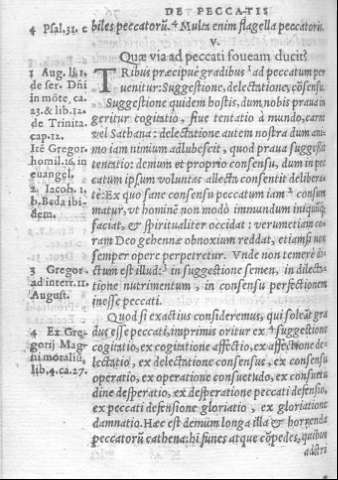 DE PECCATIS
4 Psal.31. c
biles peccatorũ.⁴ Multa enim flagella peccatoris.
V.
Quæ via ad peccati foueam ducit?
1 Aug. li.1.
de ser. Dñi
in mõte, ca.
23.& lib.12.
de Trinita.
cap.12.
Itē Gregor.
homil.16. in
euangel.
2 Iacob. 1.
b. Beda ibi-
dem.
TRibus præcipuè gradibus ¹ ad peccatum per
uenitur: Suggestione, delectatione, cõsensu.
Suggestione quidem hostis, dum nobis praua in
geritur cogitatio, siue tentatio à mundo, carne
vel Sathana: delectatione autem nostra dum ani-
mo iam nimium adlubescit, quod praua suggessit
tentatio: demum et proprio consensu, dum in pec
catum ipsum voluntas allecta consentit delibera-
tè: Ex quo sane consensu peccatum iam ² consum
matur, vt hominē non modò immundum iniquũq;
faciat, & spiritualiter occidat: verumetiam co-
ram Deo gehennæ obnoxium reddat, etiamsi non
semper opere perpetretur. Vnde non temerè di-
3 Gregor.
ad interr.11.
August.
ctum est illud: ³ in suggestione semen, in delecta-
tione nutrimentum, in consensu perfectionem
inesse peccati.
Quod si exactius consideremus, qui soleāt gra
4 Ex Gre-
gorij Mag-
ni moralib,
lib.4.ca.27.
dus esse peccati, imprimis oritur ex ⁴ suggestione
cogitatio, ex cogitatione affectio, ex affectione de-
lectatio, ex delectatione consensus, ex consensu
operatio, ex operatione consuetudo, ex consuetu
dine desperatio, ex desperatione peccati defensio,
ex peccati defensione gloriatio, ex gloriatione
damnatio. Hæc est demum longa illa & horrenda
peccatorũ cathena: hi funes atque cõpedes, quibus
adstri